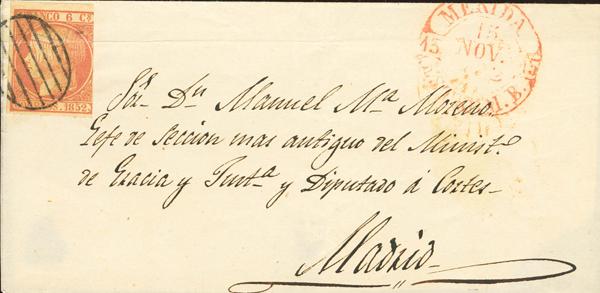 FRANCO 6 Cs
1852.
MERIDA
15
NOV.
Sor. Dn Manuel Ma. Moreno.
Gefe de Seccion mas antiguo del Ministo.
de Gracia y Justa. y Diputado á Cortes
Madrid